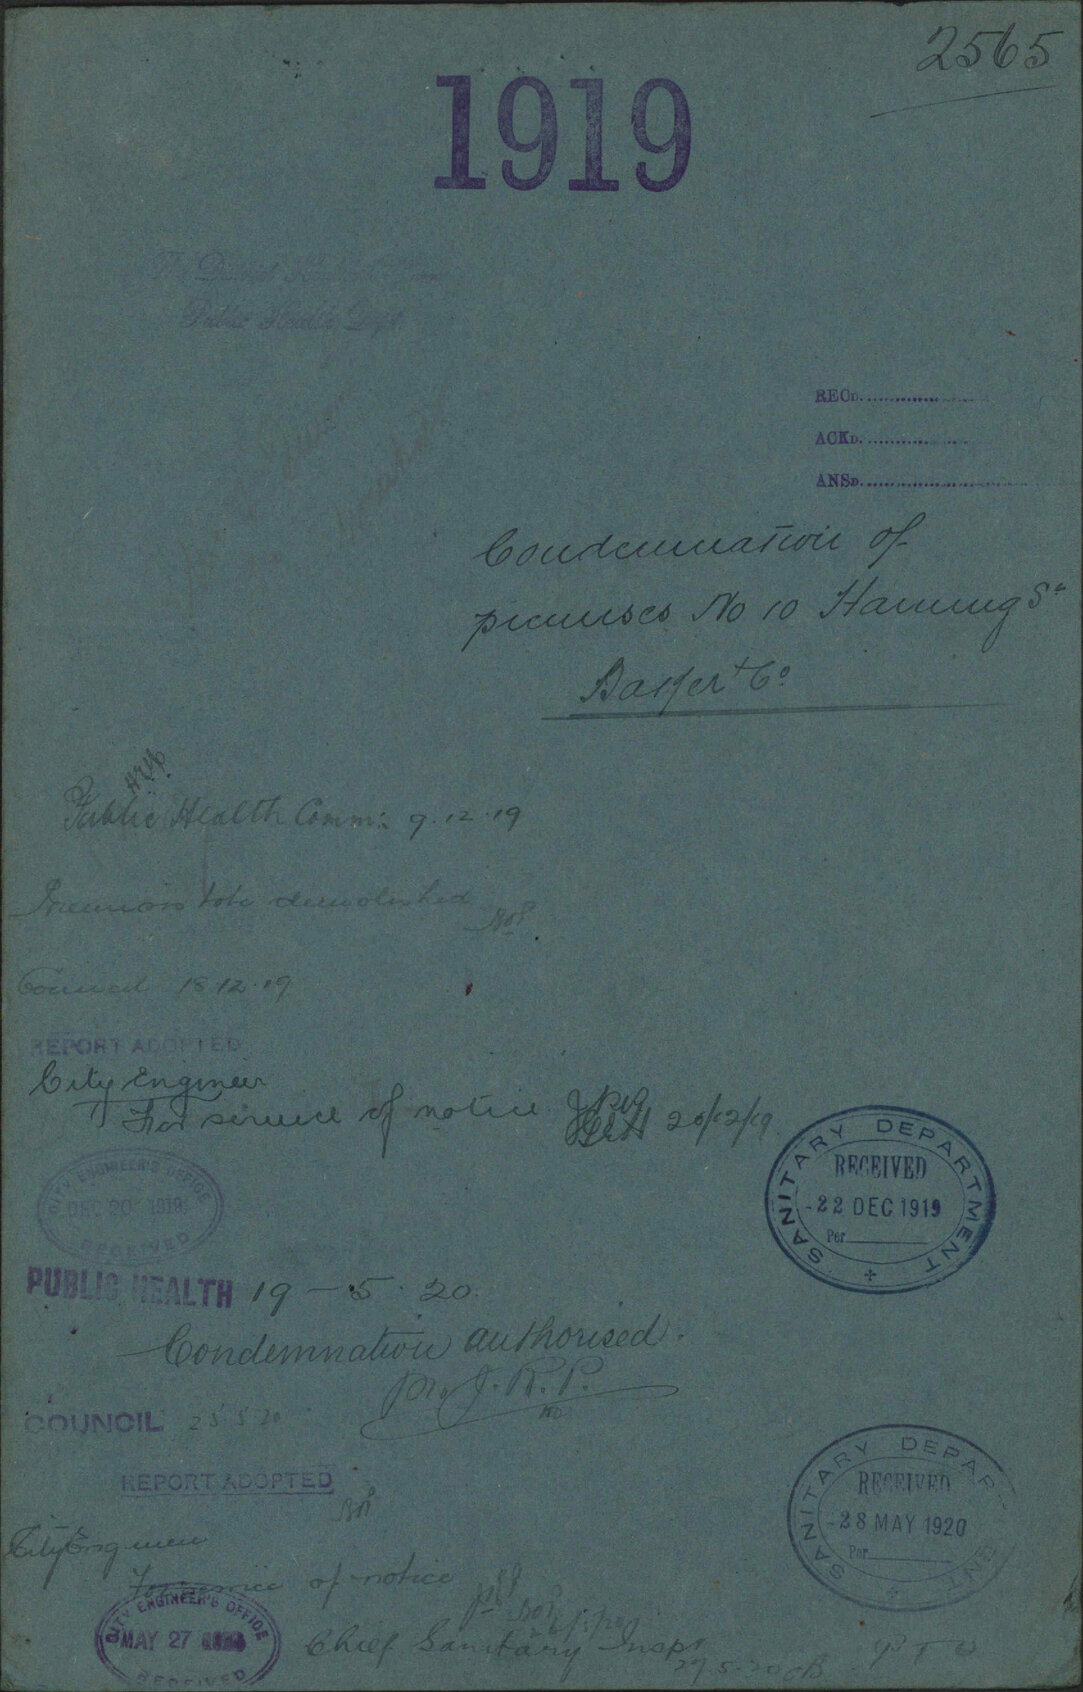 2565
1919
Public Health Dept.
RECD.
ACKD.
ANSD.
Condemnation of
premises No 10 Harring St
& Co
Public Health Comm: 9.12.19
Premises to be demolished
Council 18.12.19
REPORT ADOPTED
City Engineer
For service of notice 20/12/19
SANITARY DEPARTMENT
RECEIVED
-22 DEC 1919
Per
CITY ENGINEER'S OFFICE
DEC 20 1919
RECEIVED
PUBLIC HEALTH 19-5.20.
Condemnation authorised.
J.R.P.
COUNCIL 25 5 20
REPORT ADOPTED
SANITARY DEPARTMENT
RECEIVED
-28 MAY 1920
Per
City Engineer
For service of notice
CITY ENGINEER'S OFFICE
MAY 27
RECEIVED
Chief Sanitary Inspr
27.5.20